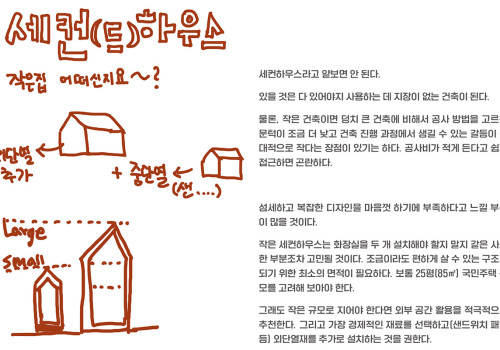 세컨(드)하우스
작은집 어떠신지요~?
외단열
추가
+ 중단열
(샌....)
Large
small
세컨하우스라고 얕보면 안 된다.
있을 것은 다 있어야지 사용하는 데 지장이 없는 건축이 된다.
물론, 작은 건축이면 덩치 큰 건축에 비해서 공사 방법을 고르
문턱이 조금 더 낮고 건축 진행 과정에서 생길 수 있는 갈등이
대적으로 작다는 장점이 있기는 하다. 공사비가 적게 든다고 쉽
접근하면 곤란하다.
섬세하고 복잡한 디자인을 마음껏 하기에 부족하다고 느낄 부
이 많을 것이다.
작은 세컨하우스는 화장실을 두 개 설치해야 할지 말지 같은 사
한 부분조차 고민될 것이다. 조금이라도 편하게 살 수 있는 구조
되기 위한 최소의 면적이 필요하다. 보통 25평(85㎡) 국민주택
모를 고려해 보아야 한다.
그래도 작은 규모로 지어야 한다면 외부 공간 활용을 적극적으
추천한다. 그리고 가장 경제적인 재료를 선택하고(샌드위치 패
등) 외단열재를 추가로 설치하는 것을 권한다.